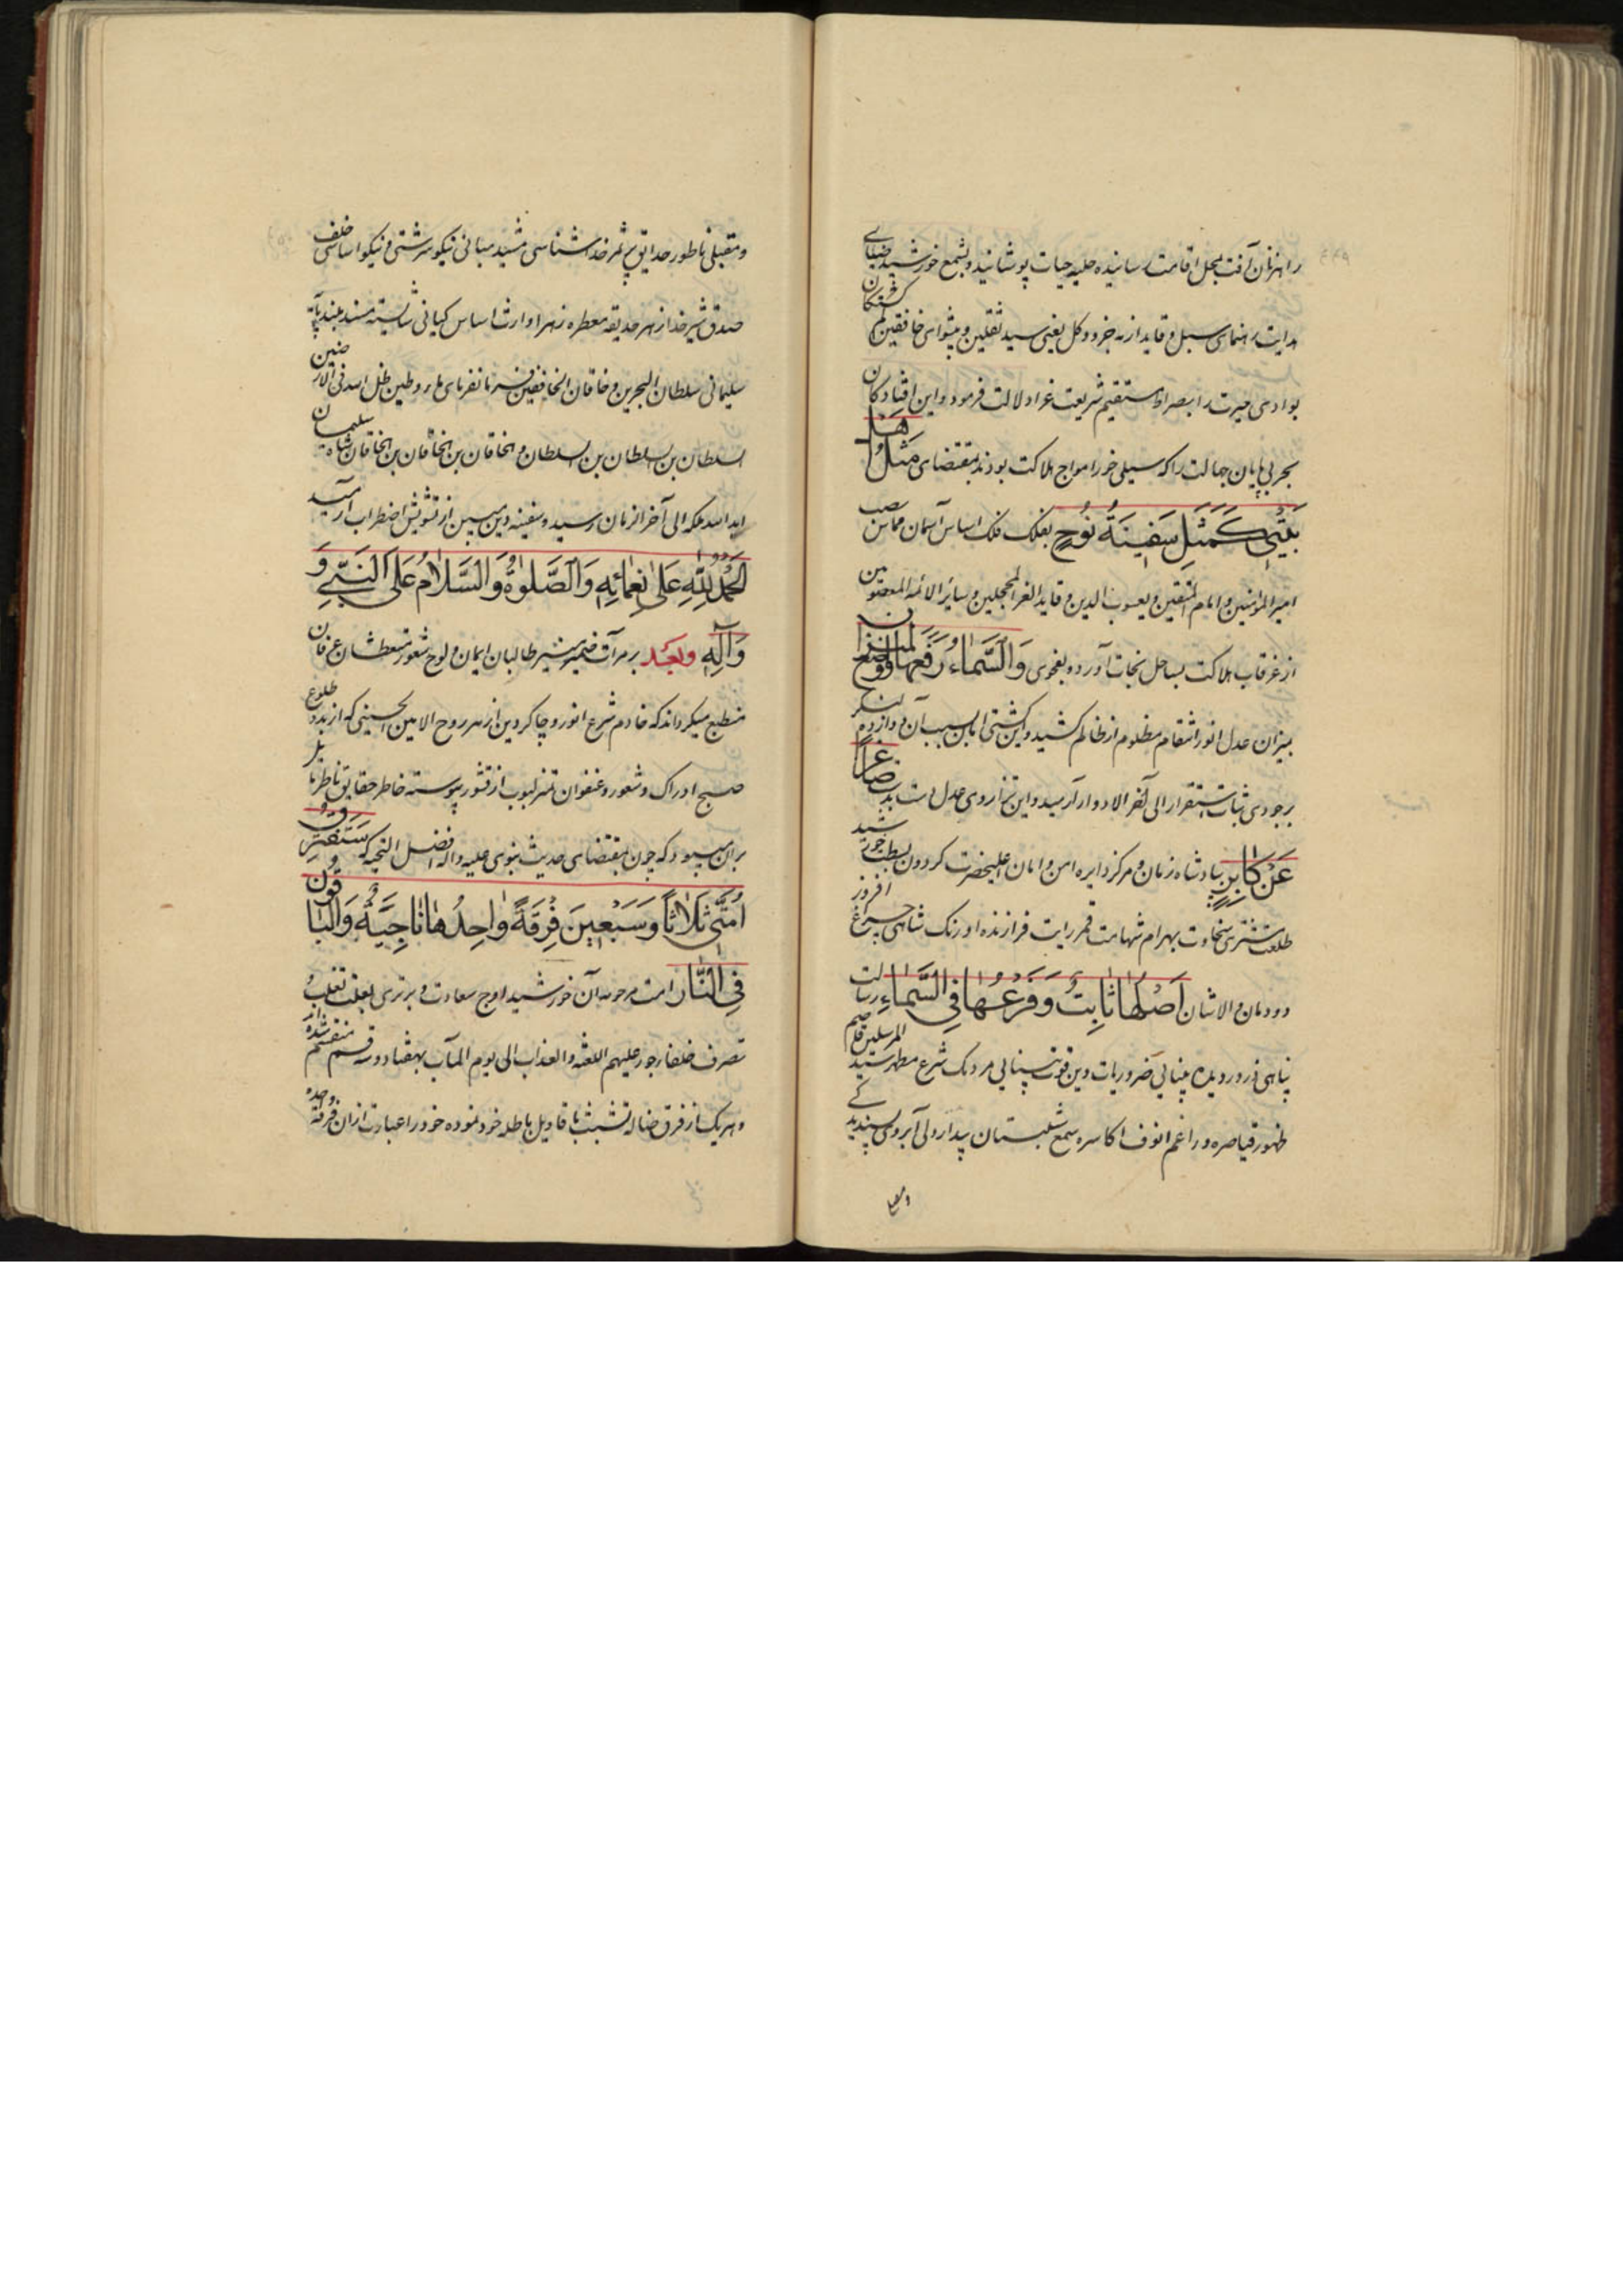 راهزنان آفت بمحل اقامت رسانیده حلیه حیات پوشانید و بشمع خورشید ضیای
هدایت رهنمای سبل و قاید از به جزو و کل یعنی سید ثقلین و پیشوای خافقین کم کشتکان
بوادی حیرت را بصراط مستقیم شریعت غرا دلالت فرمود و این افتادکان
بحر بی پایان جهالت را که سیلی خور امواج هلاکت بودند بمقتضای مَثَلُ اَهْلِ
بَیْتی کَمَثَلِ سَفینَةُ نُوحٍ بفلک فلک اساس آسمان مماس
امیر المؤمنین و امام المتقین و یعسوب الدین و قاید الغر المحجلین و سائر الائمه المعصومین
از غرقاب هلاکت بساحل نجات آورد و بفحوی وَالسَّماءَ رَفَعَها وَوَضَعَ المیزان
بمیزان عدل انور انتقام مظلوم از ظالم کشید و این کشتی را بسبب آن دوازده لنکر
بر جودی ثبات استقرار الی آخر الادوار آرمید و این ترازوی عدل بدست صاغِراً
عَنْ کابِرٍ بپادشاه زمان و مرکز دایره امن و امان اعلیحضرت کردون بسطت خورشید
طلعت مشتری سخاوت بهرام شهامت قمر رایت فرازنده اورنک شاهی چراغ افروز
دودمان والاشان اَصْلُها ثابِتٌ وَفَرْعُها فِی السَّماءِ رسالت
پناهی ذرور دیده بینایی ضروریات دین قوت بینایی مردمک شرع مطهر سید المرسلین قاصم
ظهور قیاصره و راغم انوف اکاسره شمع شبستان بیداردلی آبروی پسندیده
و مقبلی
و مقبلی ناطور حدایق پر ثمر خداشناسی مشید مبانی نیکو سرشتی و نیکو اساسی خلف
صدق شیر خدا ازهر حدیقه معطره زهرا وارث اساس کیانی شایسته مسند بلند پایه
سلیمانی سلطان البحرین و خاقان الخافقین فرمانفرمای ماء و طین ظل الله فی الارضین
السلطان بن السلطان بن السلطان و الخاقان بن الخاقان بن الخاقان شاه سلیمان
ابد الله ملکه الی آخر الزمان رسید و سفینه دین مبین از تشویش اضطراب آرمید
اَلْحَمْدُ لِلّهِ عَلی نِعَمائِهِ وَالصَّلوةُ وَالسَّلامُ عَلَی النَّبِیِّ وَ
وَآلِهِ وبعد بر مرآت ضمیر منیر طالبان ایمان و لوح شعور متعطشان عرفان
منطبع میکرداند که خادم شرع انور و چاکر دین ازهر روح الامین الحسینی که از بدو طلوع
صبح ادراک و شعور و عنفوان تمیز لبوب از قشور پیوسته خاطر حقایق ناظر مایل
بران میبود که چون بمقتضای حدیث نبوی علیه و اله افضل التحیه که سَتَفْتَرِقُ
اُمَّتی ثَلاثاً وَسَبْعینَ فِرْقَةً واحِدُها ناجِیَةٌ وَالْباقُونَ
فِی النّار امت مرحومه آن خورشید اوج سعادت و برتری بعلت تغلب و
تصرف خلفاء جور علیهم اللعنه و العذاب الی یوم المآب بهفتاد و سه قسم منقسم شده اند
و هر یک از فرق ضاله تشبث باقاویل باطله خود نموده خود را عبارت از ان فرقه واحده